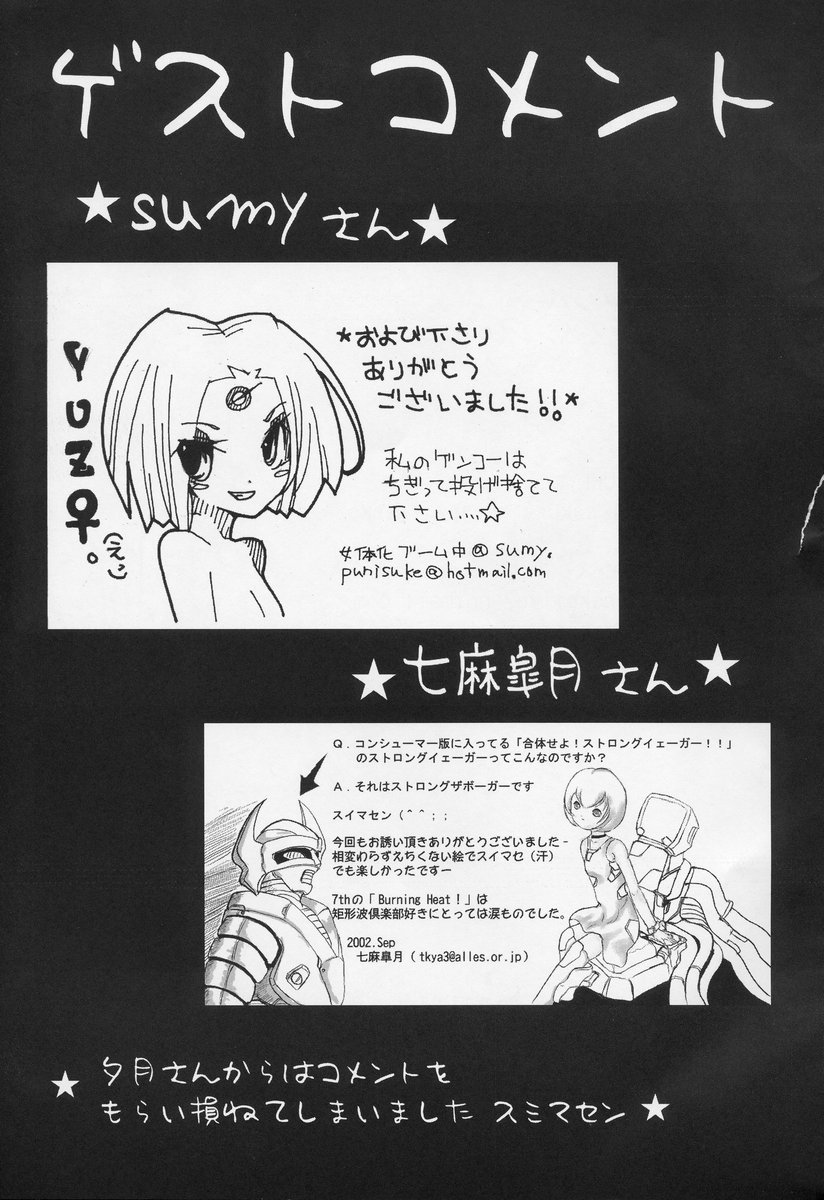 ゲストコメント
★sumyさん★
YUZ♀。
(えっ)
*および下さり
ありがとう
ございました!!*
私のゲンコーは
ちぎって投げ捨てて
下さい....☆
女体化ブーム中@sumy.
punisuke@hotmail.com
★七麻皐月さん★
Q．コンシューマー版に入ってる「合体せよ！ストロングイェーガー！！」
のストロングイェーガーってこんなのですか？
A．それはストロングザボーガーです
スイマセン（＾＾；；
今回もお誘い頂きありがとりございました-
相変わらずえちくない絵でスイマセ（汗）
でも楽しかったですー
7thの「Burning Heat！」は
矩形波倶楽部好きにとっては涙ものでした。
2002.Sep
七麻皐月（tkya3@alles.or.jp）
★夕月さんからはコメントを
もらい損ねてしまいました スミマセン★